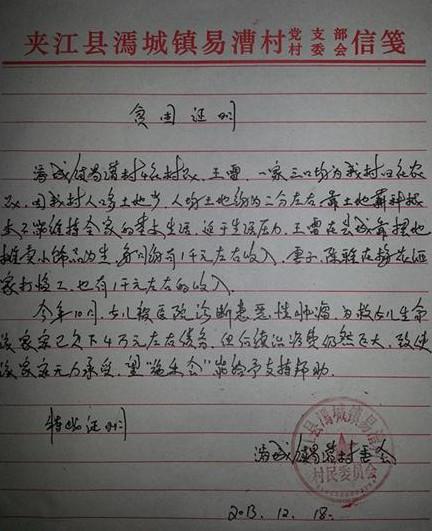 夹江县漹城镇易漕村党支部村委会信笺
贫困证明
漹城镇易漕村在村民王雷,一家三口均为我村旧在农
民,因我村人口多土地少,人均土地约为二分左右,靠土地靠种根
本不能维持全家的基本生活,迫于生活压力,王雷在县城靠摆地
摊卖小饰品为生,每月约有1千元左右收入,妻子陈雅在
家打临工,也有1千元左右的收入。
今年10月,女儿被医院诊断患恶性肿瘤,为救女儿生命
该家家已欠下4万元左右债务,但后续治资费仍然巨大,致使
该家家无力承受,望"施乐会"能给予支持帮助。
特此证明
漹城镇易漕村委会
夹江县漹城镇易漕
村民委员会
2013.12.18.